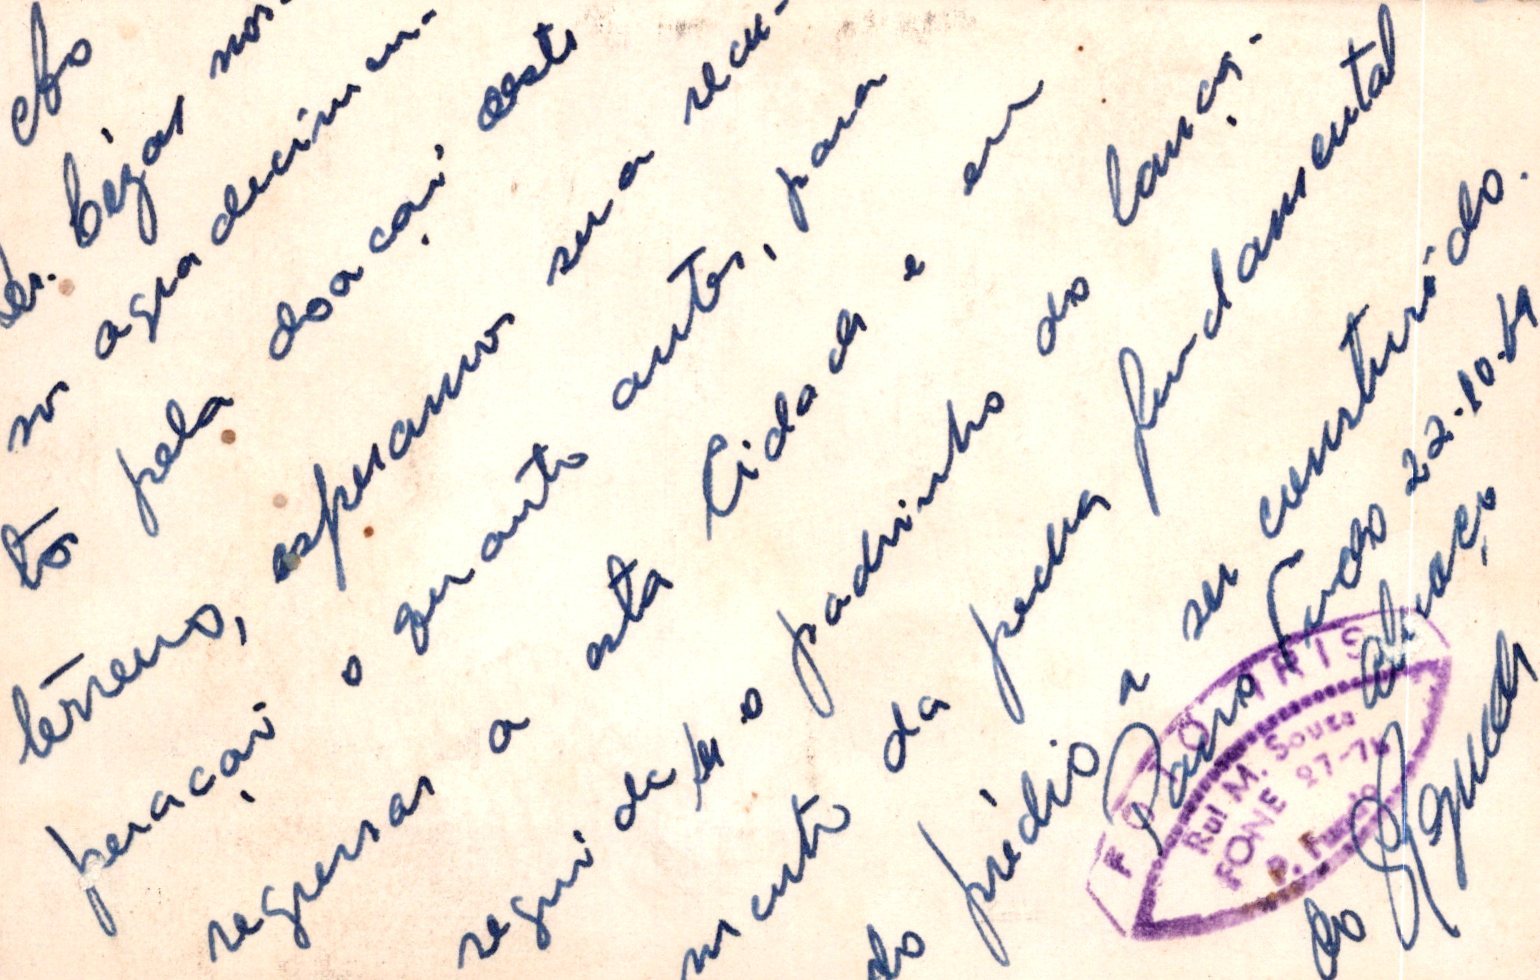 Bézar nos-
so agradecimen-
to pela doação deste
terreno, esperamos sua recu-
peração o quanto antes, para
regressar a esta Cidade e em
seguida ser o padrinho do lança-
mento da pedra fundamental
do prédio a ser construido.
Passo Fundo 22-10-64
abraço
do
FOTO IRIS
Rui M. Souza
FONE 27-74
P. Fundo